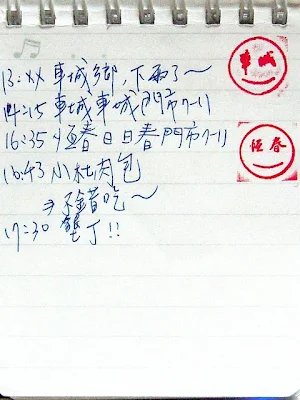 13:XX 車城鄉,下雨了~
14:15 車城車城門市7-11
16:35 恆春日日春門市7-11
16:43 小杜肉包
→不錯吃~
17:30 墾丁!!
車城
恆春